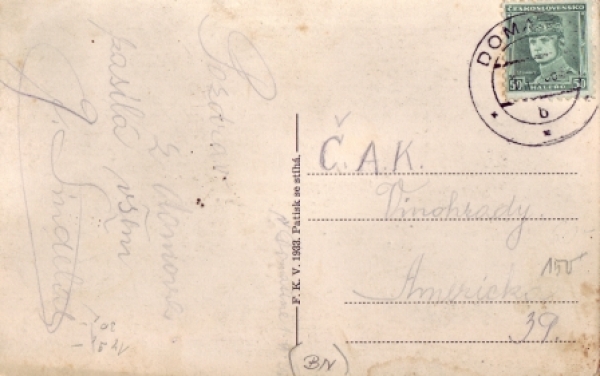 Pozdrav
z domova
zasílá všem
J. Šindelář
F. K. V. 1933. Patisk se stíhá.
ČESKOSLOVENSKO
50 50
HALÉŘŮ
DOMA
b
Č. A. K.
Vinohrady.
Americká
39.
150
BN